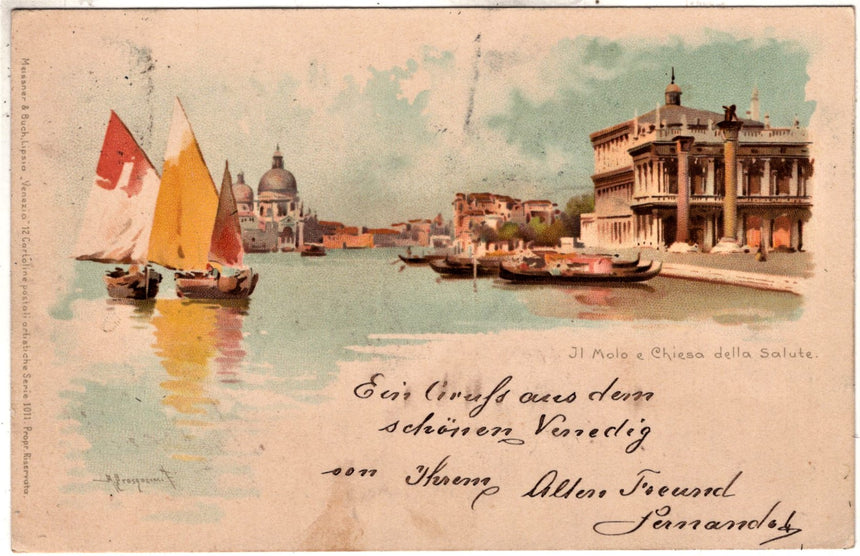 Meissner & Buch, Lipsia „Venezia" 12 Cartoline postali artistiche Serie 1011. Propr. Riservata.
Il Molo e Chiesa della Salute.
Ein Gruß aus dem
schönen Venedig
von Ihrem Alten Freund
Fernando